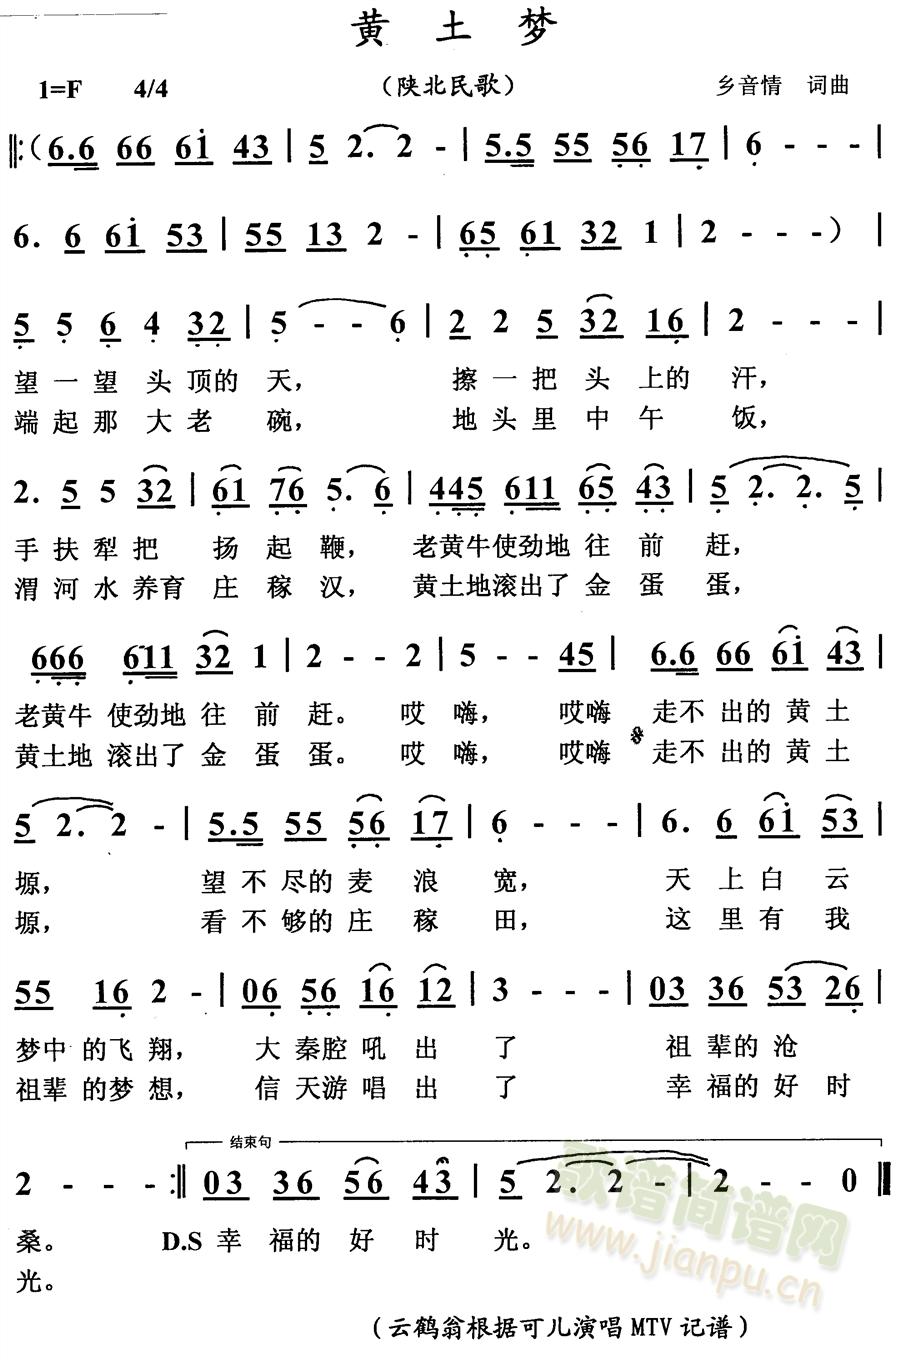 黄 土 梦
1=F 4/4 （陕北民歌） 乡音情 词曲
‖:（6.6 66 61 43 | 5 2. 2 - | 5.5 55 56 17 | 6 - - - |
6. 6 61 53 | 55 13 2 - | 65 61 32 1 | 2 - - -） |
5 5 6 4 32 | 5 - - 6 | 2 2 5 32 16 | 2 - - - |
望 一 望 头 顶的 天， 擦 一 把 头 上的 汗，
端 起 那 大 老 碗， 地 头 里 中 午 饭，
2. 5 5 32 | 61 76 5. 6 | 445 611 65 43 | 5 2. 2. 5 |
手 扶 犁 把 扬 起 鞭， 老黄牛使劲地 往 前 赶，
渭 河 水 养育 庄 稼 汉， 黄土地滚出了 金 蛋 蛋，
666 611 32 1 | 2 - - 2 | 5 - - 45 | 6.6 66 61 43 |
老黄牛 使劲地 往 前 赶。 哎 嗨， 哎嗨 走不 出的 黄 土
黄土地 滚出了 金 蛋 蛋。 哎 嗨， 哎嗨 走不 出的 黄 土
5 2. 2 - | 5.5 55 56 17 | 6 - - - | 6. 6 61 53 |
塬， 望 不 尽的 麦 浪 宽， 天 上 白 云
塬， 看 不 够的 庄 稼 田， 这 里 有 我
55 16 2 - | 06 56 16 12 | 3 - - - | 03 36 53 26 |
梦中 的飞 翔， 大 秦腔 吼 出 了 祖 辈的 沧
祖辈 的梦 想， 信 天游 唱 出 了 幸 福的 好 时
结束句
2 - - - :‖ 03 36 56 43 | 5 2. 2 - | 2 - - 0 ‖
桑。 D.S 幸 福的 好 时 光。
光。
歌谱简谱网
www.jianpu.cn
（云鹤翁根据可儿演唱MTV记谱）